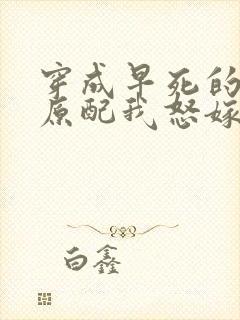 穿成早死的
原配我怒嫁
白鑫